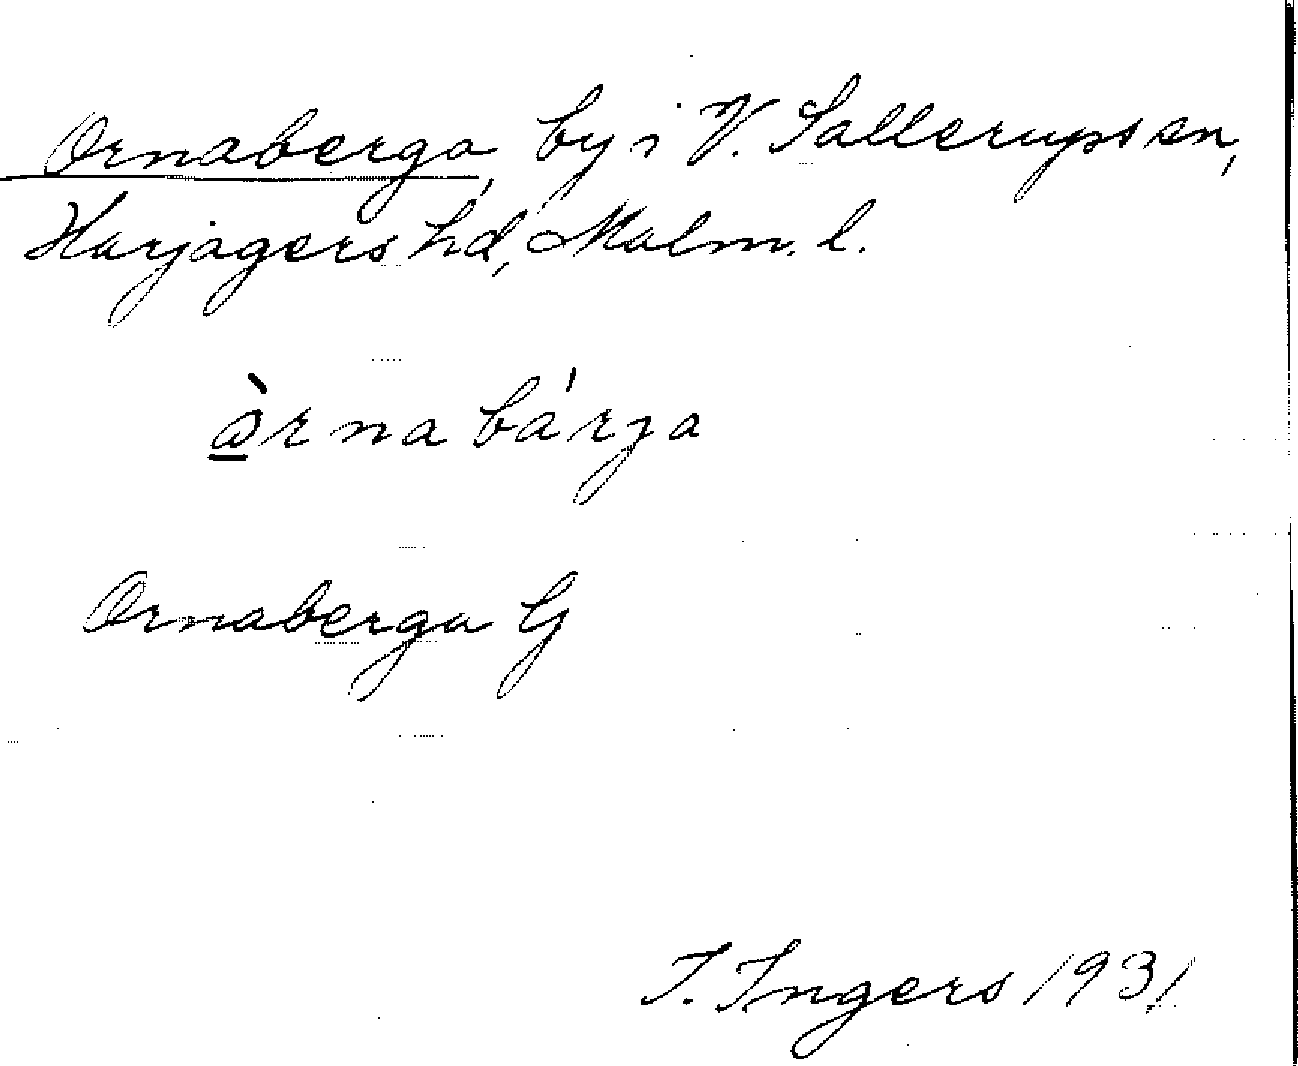 Ornaberga, by i V. Sallerups sn,
Harjagers hd, Malm. l.
òrnabárja
Ornaberga G
I. Ingers 1931